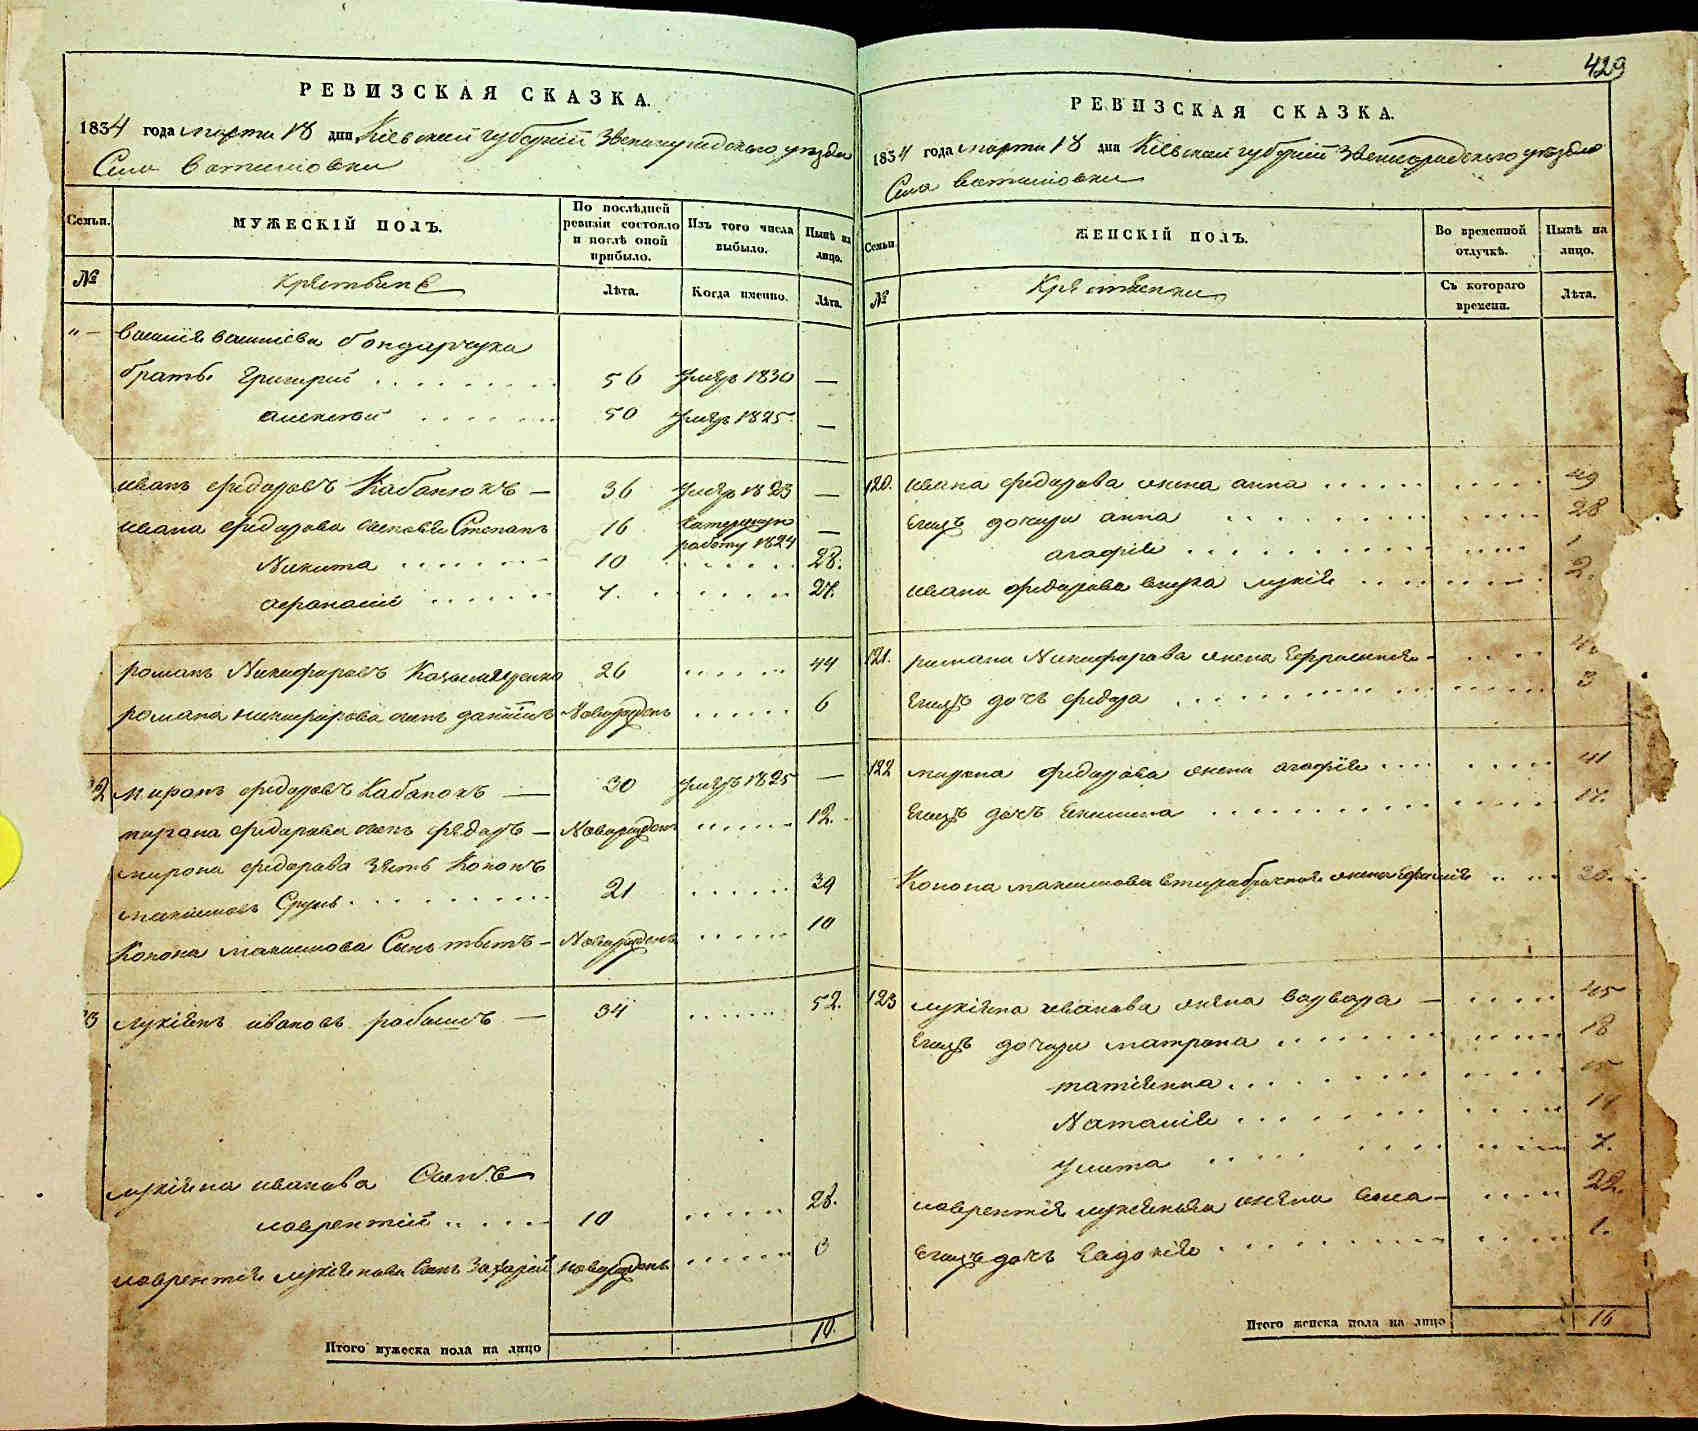 429
РЕВИЗСКАЯ СКАЗКА.
1834 года марта 18 дня Кіевской губерніи Звенигородского уезда
Села Ватиловки
Семьи. МУЖЕСКІЙ ПОЛЪ. По послѣдней ревизіи состояло и послѣ оной прибыло. Изъ того числа выбыло. Нынѣ на лицо.
№ Крестьяне Лѣта. Когда именно. Лѣта.
Василія Василіева Бондарчука
братья Григорій 56 умеръ 1830 —
алексѣй 50 умеръ 1825 —
иванъ федоровъ Кабанюкъ — 36 умеръ 1823 —
ивана федорова сыновья Степанъ 16 работу 1824 —
Никита 10 28.
афанасій 7. 27.
романъ Никифоровъ 26 44
романа никифорова сынъ даніилъ Новорожденъ 6
миронъ федоровъ Кабанюкъ — 30 умеръ 1825 —
мирона федорова сынъ федоръ — Новорожденъ 12.
мирона федорова зять Кононъ
максимовъ 21 39
Конона максимова Сынъ титъ — Новорожденъ 10
лукіянъ ивановъ рабошъ — 34 52.
лукіяна иванова Сынъ
лаврентій 10 28.
лаврентія лукіянова Сынъ Захарій новорожденъ 3
Итого мужеска пола на лицо 10.
РЕВИЗСКАЯ СКАЗКА.
1834 года марта 18 дня Кіевской губерніи Звенигородского уезда
Села Ватиловки
Семьи. ЖЕНСКІЙ ПОЛЪ. Во временной отлучкѣ. Нынѣ на лицо.
№ Крестьянки Съ котораго времени. Лѣта.
120. ивана федорова жена анна 49
Егожъ дочери анна 28
агафія
ивана федорова внука лукія 2.
121. романа Никифорова жена Ефросинія —
Егожъ дочь федора 3
122 мирона федорова жена агафія 41
Егожъ дочь 17.
Конона максимова втораобрачная жена Ефимія 30.
123 лукіяна иванова жена варвара — 45
Егожъ дочери матрона 18
татіянна 15
Наталія 11
улита 7.
лаврентія лукіянова жена — 22.
Егожъ дочь Евдокія 1.
Итого женска пола на лицо 16